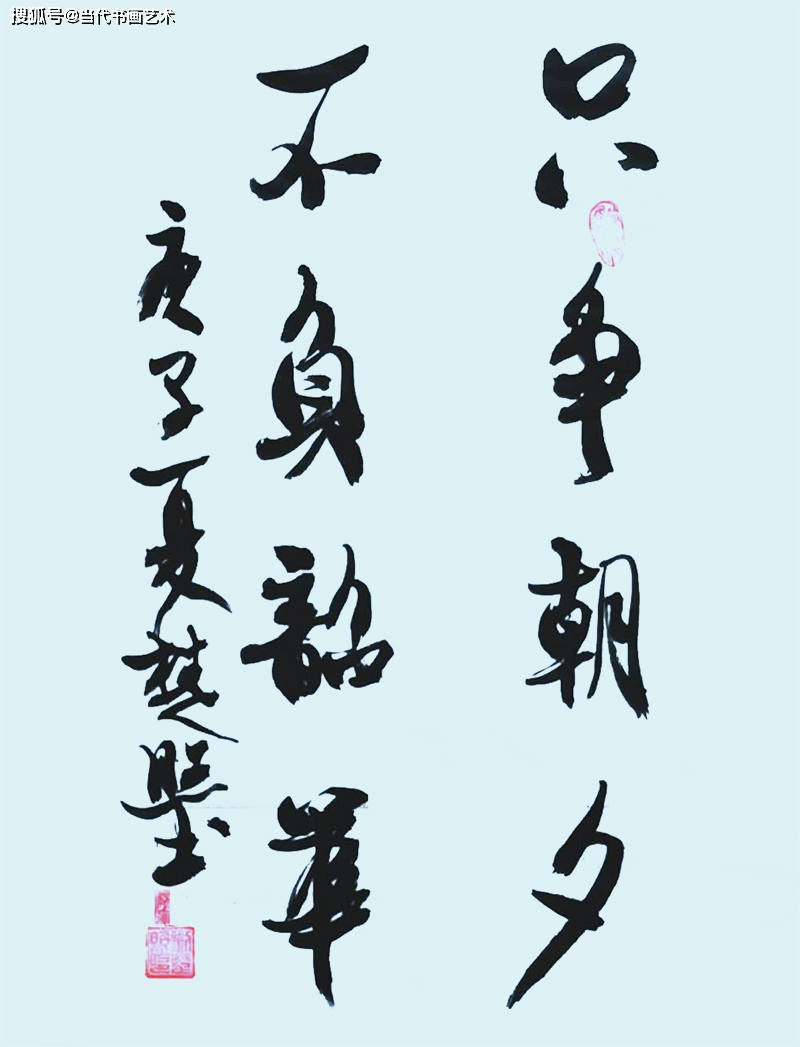 搜狐号@当代书画艺术
只争朝夕
不負韶華
庚子夏楚墨